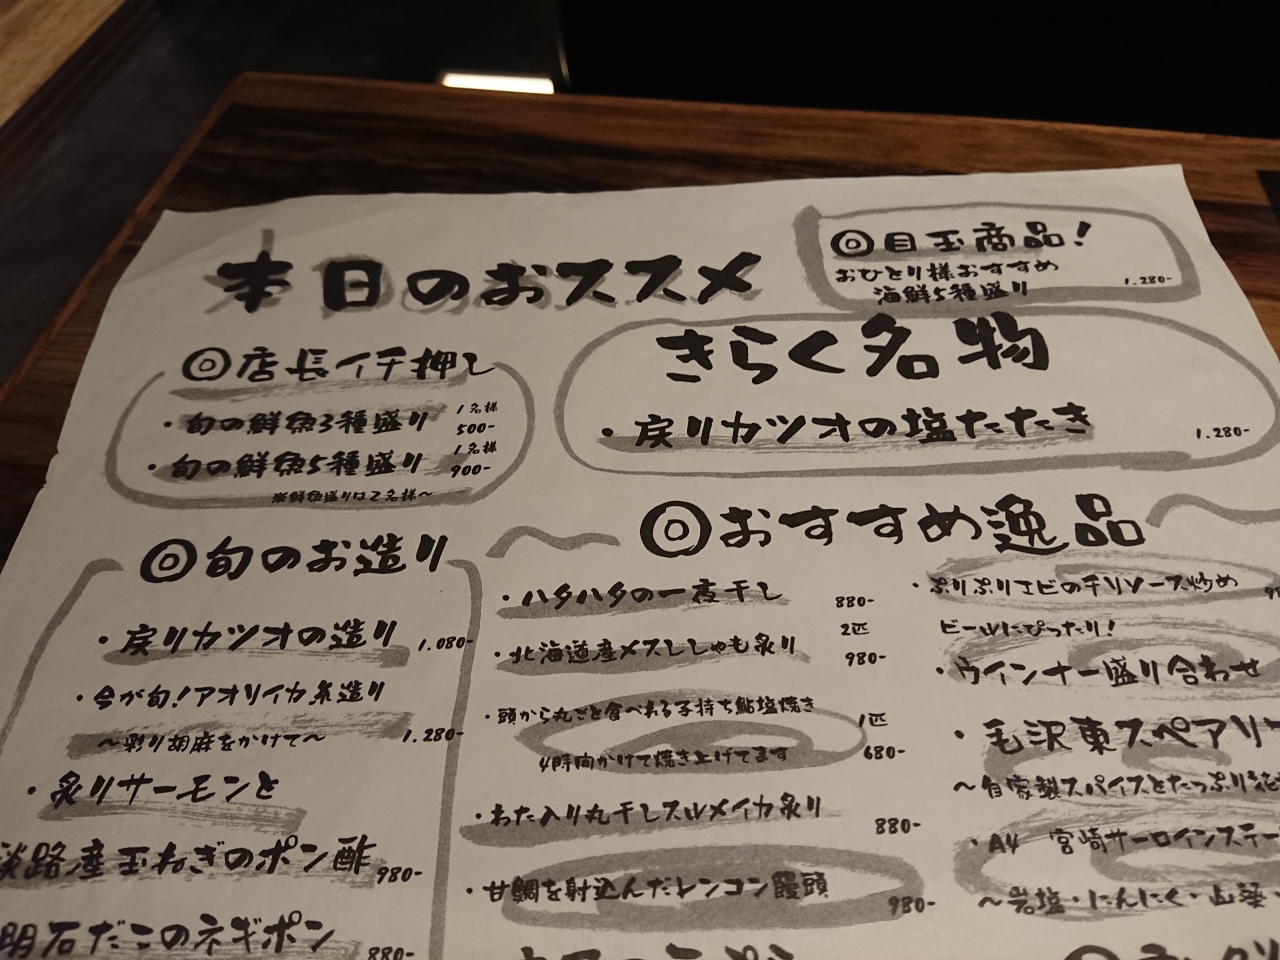 本日のおススメ
◎目玉商品!
おひとり様おすすめ
海鮮5種盛り 1.280-
◎店長イチ押し
・旬の鮮魚3種盛り 1名様 500-
・旬の鮮魚5種盛り 1名様 900-
※鮮魚盛りは2名様〜
きらく名物
・戻りカツオの塩たたき 1.280-
◎旬のお造り
・戻りカツオの造り 1.080-
・今が旬!アオリイカ糸造り
〜彩り胡麻をかけて〜 1.280-
・炙りサーモンと
淡路産玉ねぎのポン酢 980-
明石だこのネギポン 880-
〜◎おすすめ逸品〜
・ハタハタの一夜干し 880-
・北海道産メスししゃも炙り 2匹 980-
・頭から丸ごと食べれる子持ち鮎塩焼き 1匹
4時間かけて焼き上げてます 680-
・わた入り丸干しスルメイカ炙り 880-
・甘鯛を射込んだレンコン饅頭 980-
・ぷりぷりエビのチリソース炒め
ビールにぴったり!
・ウインナー盛り合わせ
・毛沢東スペアリ
〜自家製スパイスとたっぷり
・A4 宮崎サーロインステー
〜岩塩・にんにく・山葵